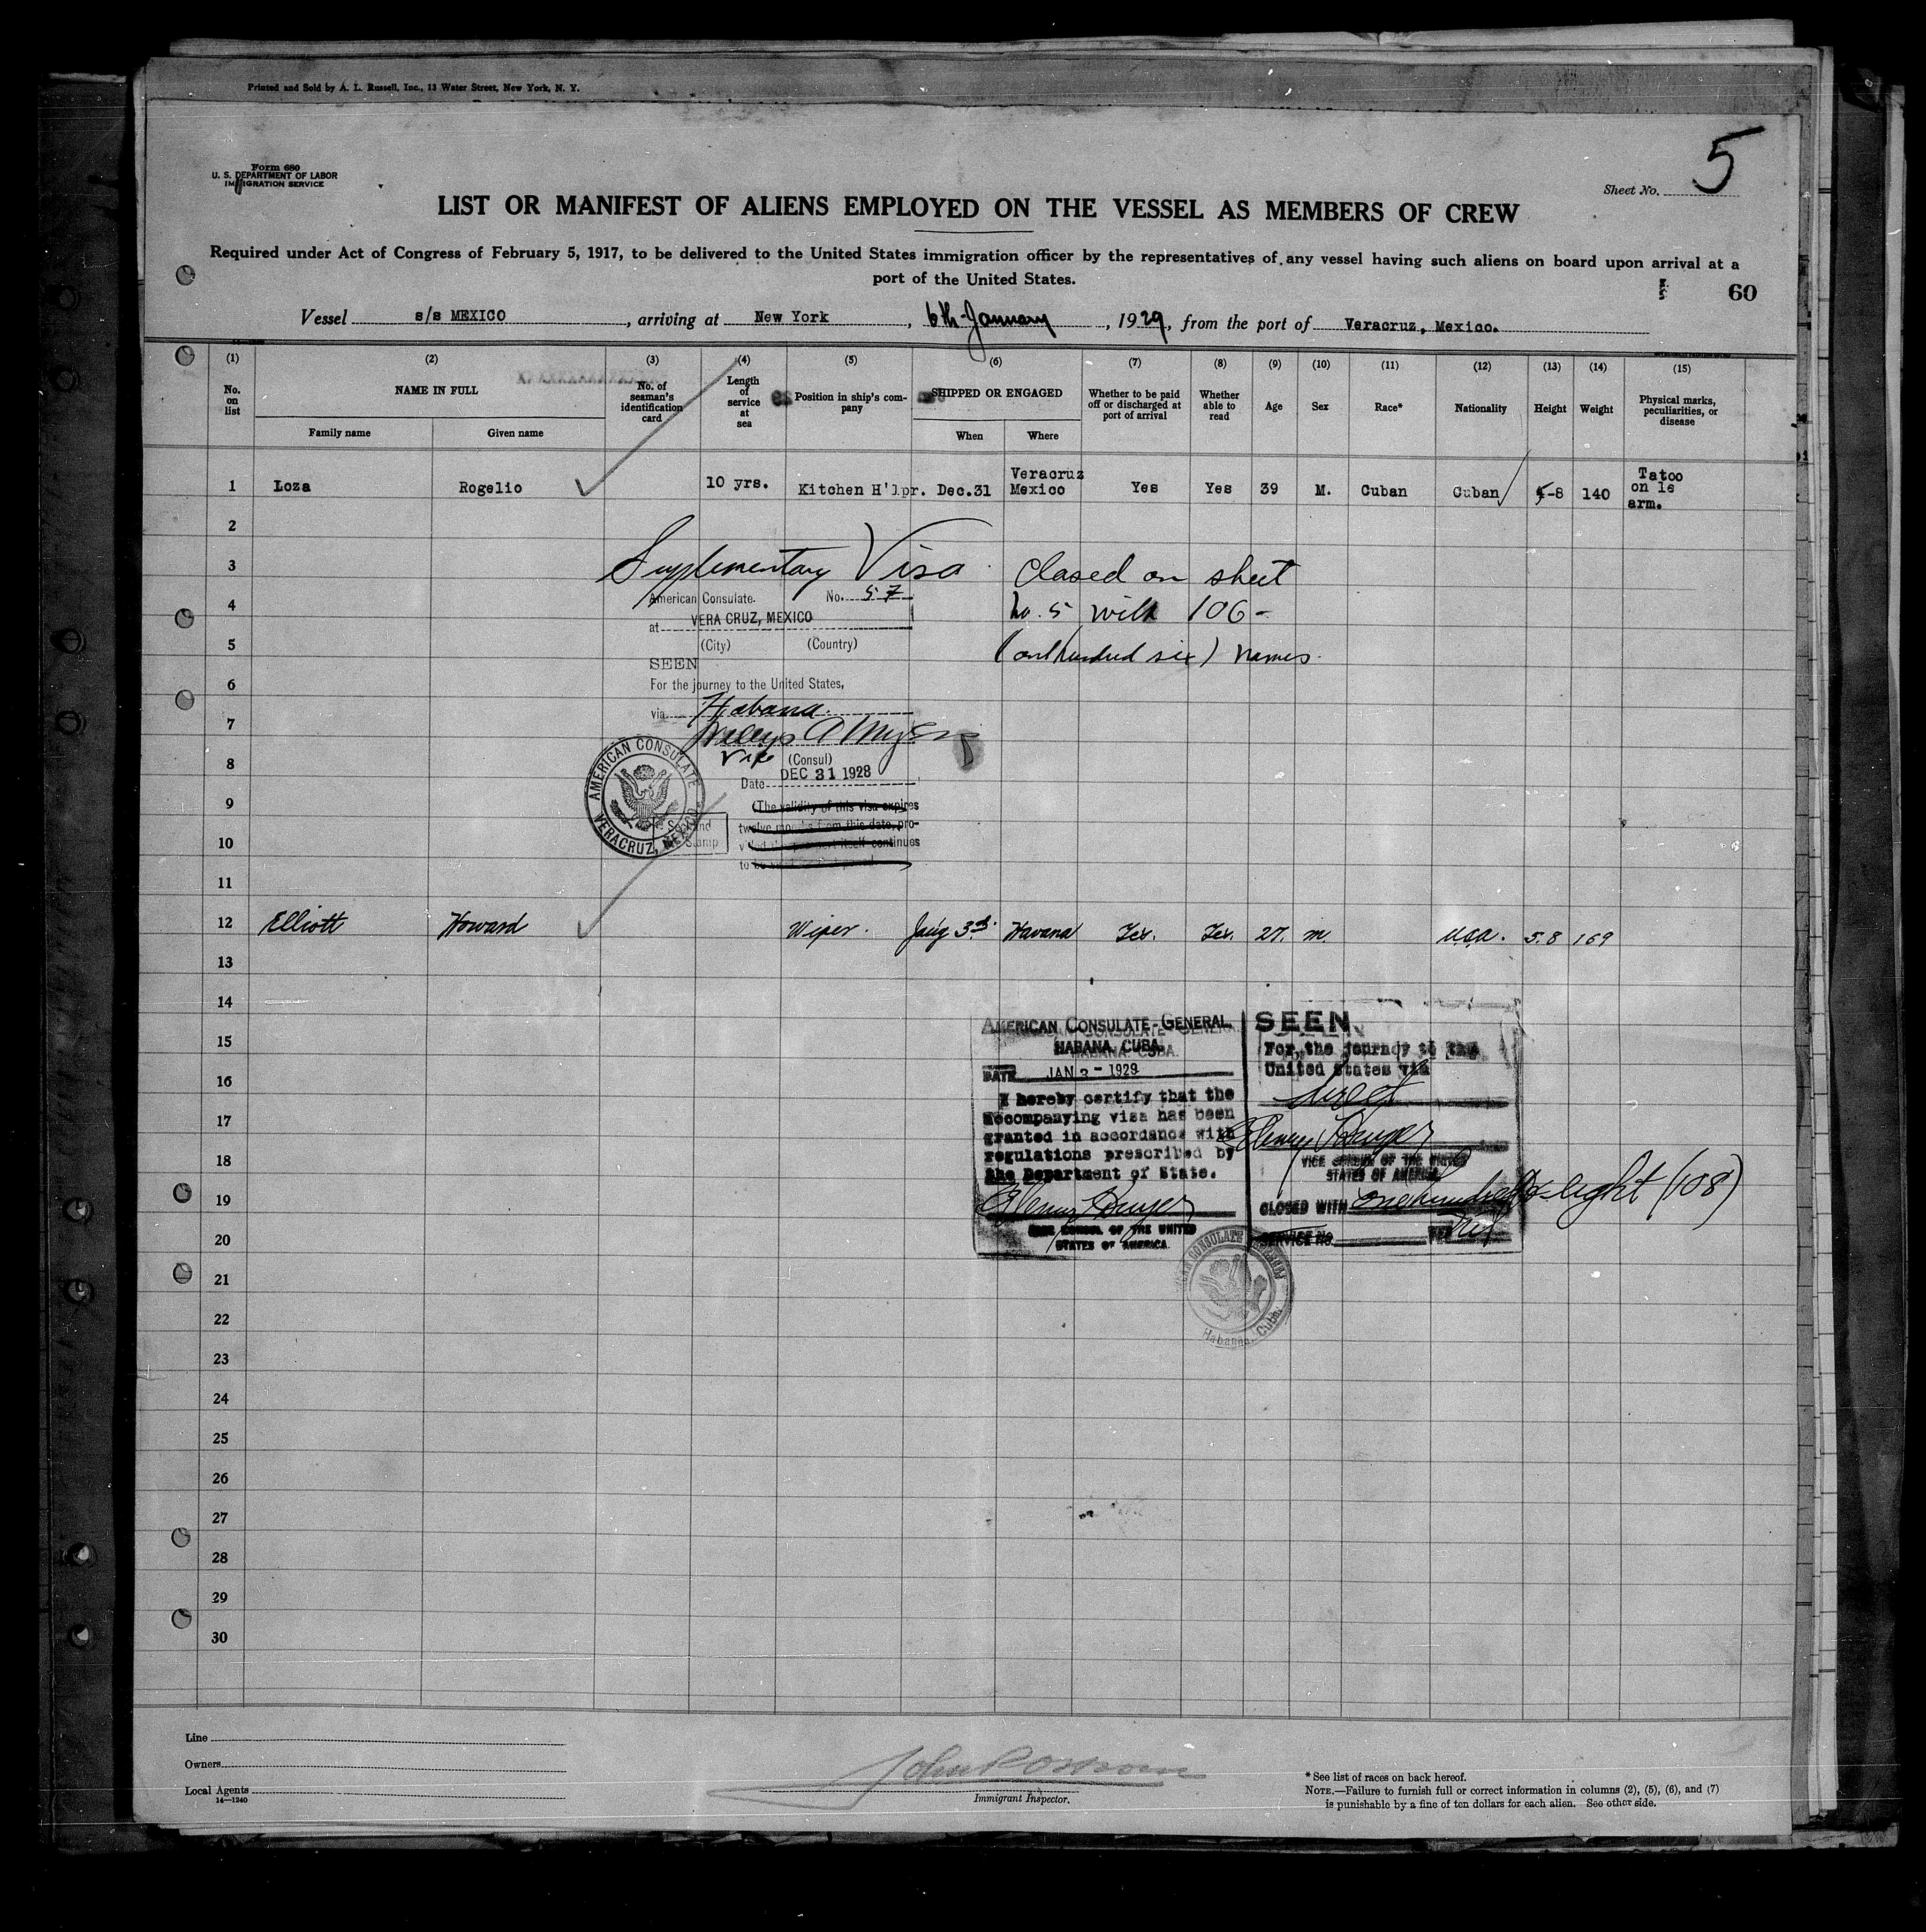 Printed and Sold by A. L. Russell, Inc., 13 Water Street, New York, N. Y.
5
Form 680
U. S. DEPARTMENT OF LABOR
IMMIGRATION SERVICE
Sheet No.
LIST OR MANIFEST OF ALIENS EMPLOYED ON THE VESSEL AS MEMBERS OF CREW
Required under Act of Congress of February 5, 1917, to be delivered to the United States immigration officer by the representatives of any vessel having such aliens on board upon arrival at a
port of the United States.
60
Vessel s/s MEXICO, arriving at New York, 6th January, 1929, from the port of Veracruz, Mexico.
(1) (2) (3) (4) (5) (6) (7) (8) (9) (10) (11) (12) (13) (14) (15)
No. on list
NAME IN FULL
Family name Given name
No. of seaman's identification card
Length of service at sea
Position in ship's company
SHIPPED OR ENGAGED
When Where
Whether to be paid off or discharged at port of arrival
Whether able to read
Age
Sex
Race*
Nationality
Height
Weight
Physical marks, peculiarities, or disease
1 Loza Rogelio 10 yrs. Kitchen H'lpr. Dec.31 Veracruz Mexico Yes Yes 39 M. Cuban Cuban 5-8 140 Tatoo on le arm.
2
3
4
5
6
7
8
9
10
11
Suplementary Visa
American Consulate. No. 57
at VERA CRUZ, MEXICO
(City) (Country)
SEEN
For the journey to the United States,
via Habana.
Vice (Consul)
Date DEC 31 1928
(The validity of this visa expires
twelve months from this date, pro-
AMERICAN CONSULATE
VERACRUZ, MEXICO
Stamp
Closed on sheet
No. 5 with 106-
(one hundred six) names.
12 Elliott Howard Wiper. Jany 3rd. Havana Yes. Yes. 27. m. U.S.A. 5.8 169
13
14
15
16
17
18
19
20
21
22
23
24
25
26
27
28
29
30
AMERICAN CONSULATE-GENERAL,
HABANA, CUBA.
DATE JAN 3 - 1929
I hereby certify that the
accompanying visa has been
granted in accordance with
regulations prescribed by
the Department of State.
VICE CONSUL OF THE UNITED
STATES OF AMERICA
SEEN
For the journey to the
United States via
direct
VICE CONSUL OF THE UNITED
STATES OF AMERICA
CLOSED WITH one hundred & eight (108)
SERVICE NO.
Habana, Cuba.
Line
Owners
Local Agents
14—1240
Immigrant Inspector.
* See list of races on back hereof.
NOTE.—Failure to furnish full or correct information in columns (2), (5), (6), and (7)
is punishable by a fine of ten dollars for each alien. See other side.